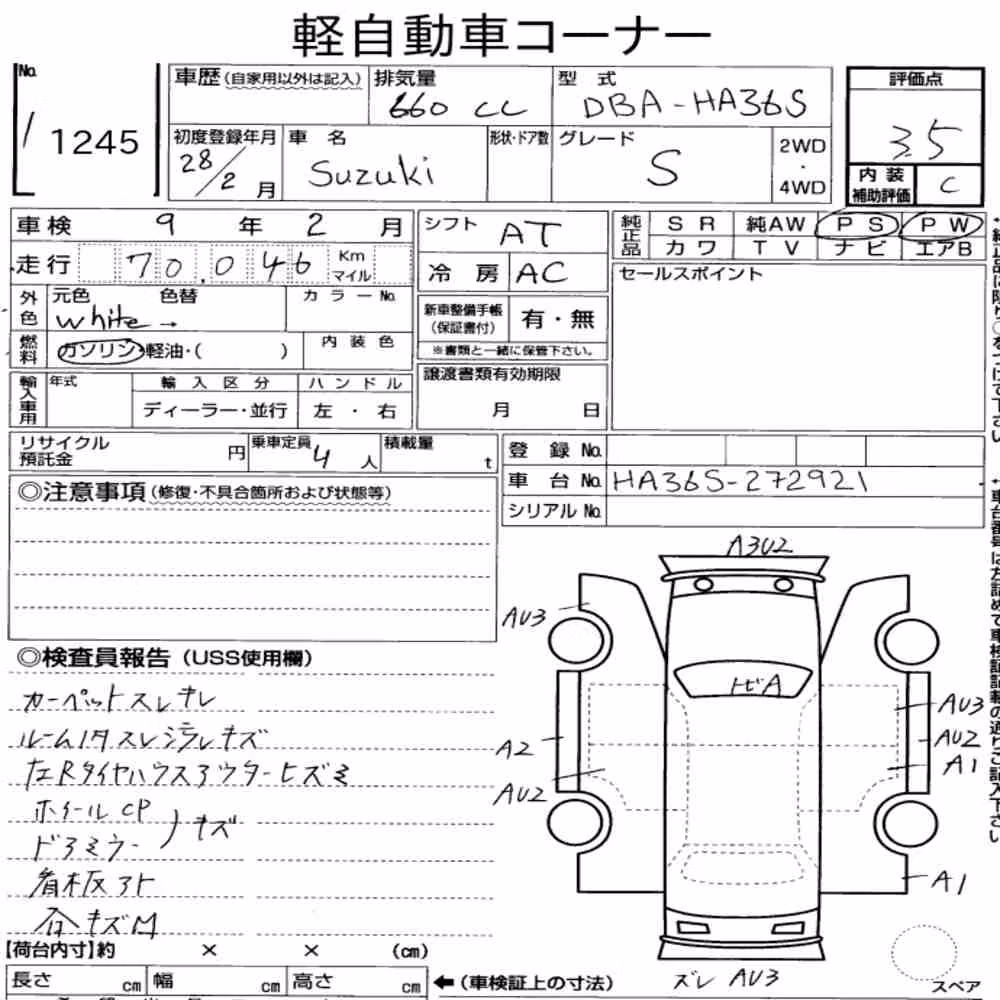 軽自動車コーナー
No. 車歴 (自家用以外は記入) 排気量 型式 評価点
1245 660 cc DBA-HA36S 3.5
初度登録年月 車名 形状・ドア数 グレード 2WD・4WD 内装補助評価
28/2月 Suzuki S C
車検 9年2月 シフト AT 純正品 SR 純AW PS PW
走行 70.046 Km マイル 冷房 AC カワ TV ナビ エアB
外色 元色 色替 カラーNo. セールスポイント
white→ 新車整備手帳 (保証書付) 有・無
燃料 ガソリン・軽油・( ) 内装色 ※書類と一緒に保管下さい。
輸入車用 年式 輸入区分 ハンドル 譲渡書類有効期限
ディーラー・並行 左・右 月 日
リサイクル預託金 円 乗車定員 4人 積載量 t 登録No.
車台No. HA36S-272921
シリアルNo.
◎注意事項 (修復・不具合箇所および状態等)
A3U2
AU3
◎検査員報告 (USS使用欄)
トビA
カーペットスレキレ
AU3
ルーム内スレ汚レキズ
A2 AU2
左Rタイヤハウスアウターヒズミ
AU2 A1
ホイールCP
ドアミラー
キズ
看板アト
A1
合キズM
【荷台内寸】約 × × (cm)
長さ cm 幅 cm 高さ cm ←(車検証上の寸法) ズレ AU3 スペア